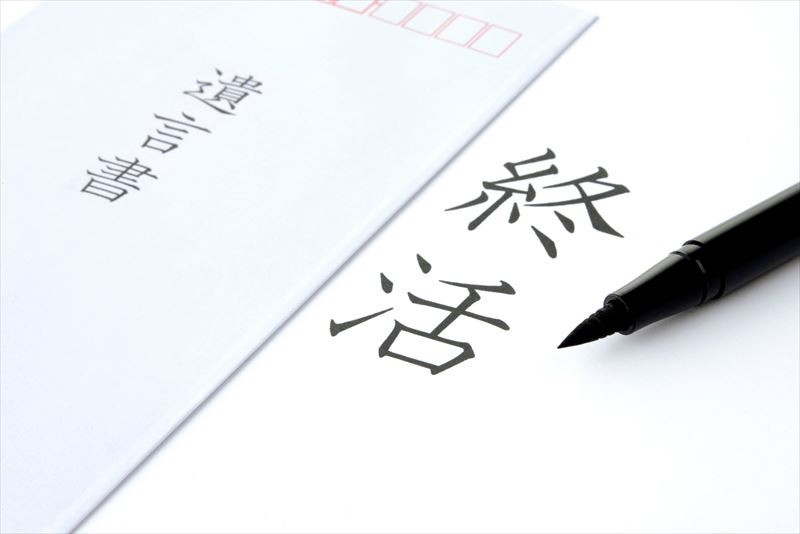 遺言書
終活